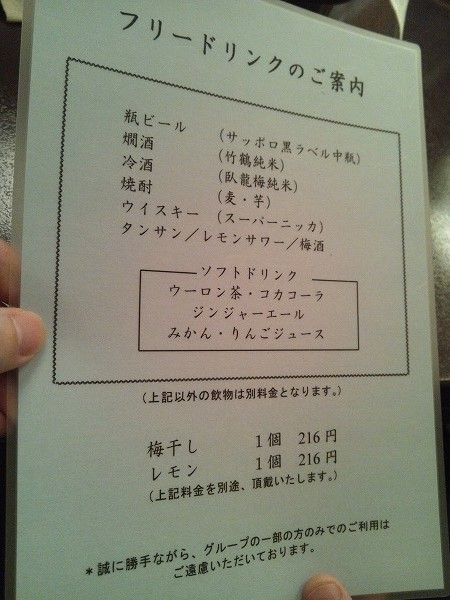 フリードリンクのご案内
瓶ビール (サッポロ黒ラベル中瓶)
燗酒 (竹鶴純米)
冷酒 (臥龍梅純米)
焼酎 (麦・芋)
ウイスキー (スーパーニッカ)
タンサン/レモンサワー/梅酒
ソフトドリンク
ウーロン茶・コカコーラ
ジンジャーエール
みかん・りんごジュース
(上記以外の飲物は別料金となります。)
梅干し 1個 216円
レモン 1個 216円
(上記料金を別途、頂戴いたします。)
*誠に勝手ながら、グループの一部の方のみでのご利用は
ご遠慮いただいております。